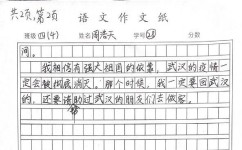 共2页,第2页 语文作文纸
班级四(4) 姓名周浩天 学号28 分数
间。
我相信有强大祖国的依靠,武汉的疫情一
定会被彻底消灭。那个时候,我一定要回武汉
的,还要请帮助过武汉的朋友们去做客。